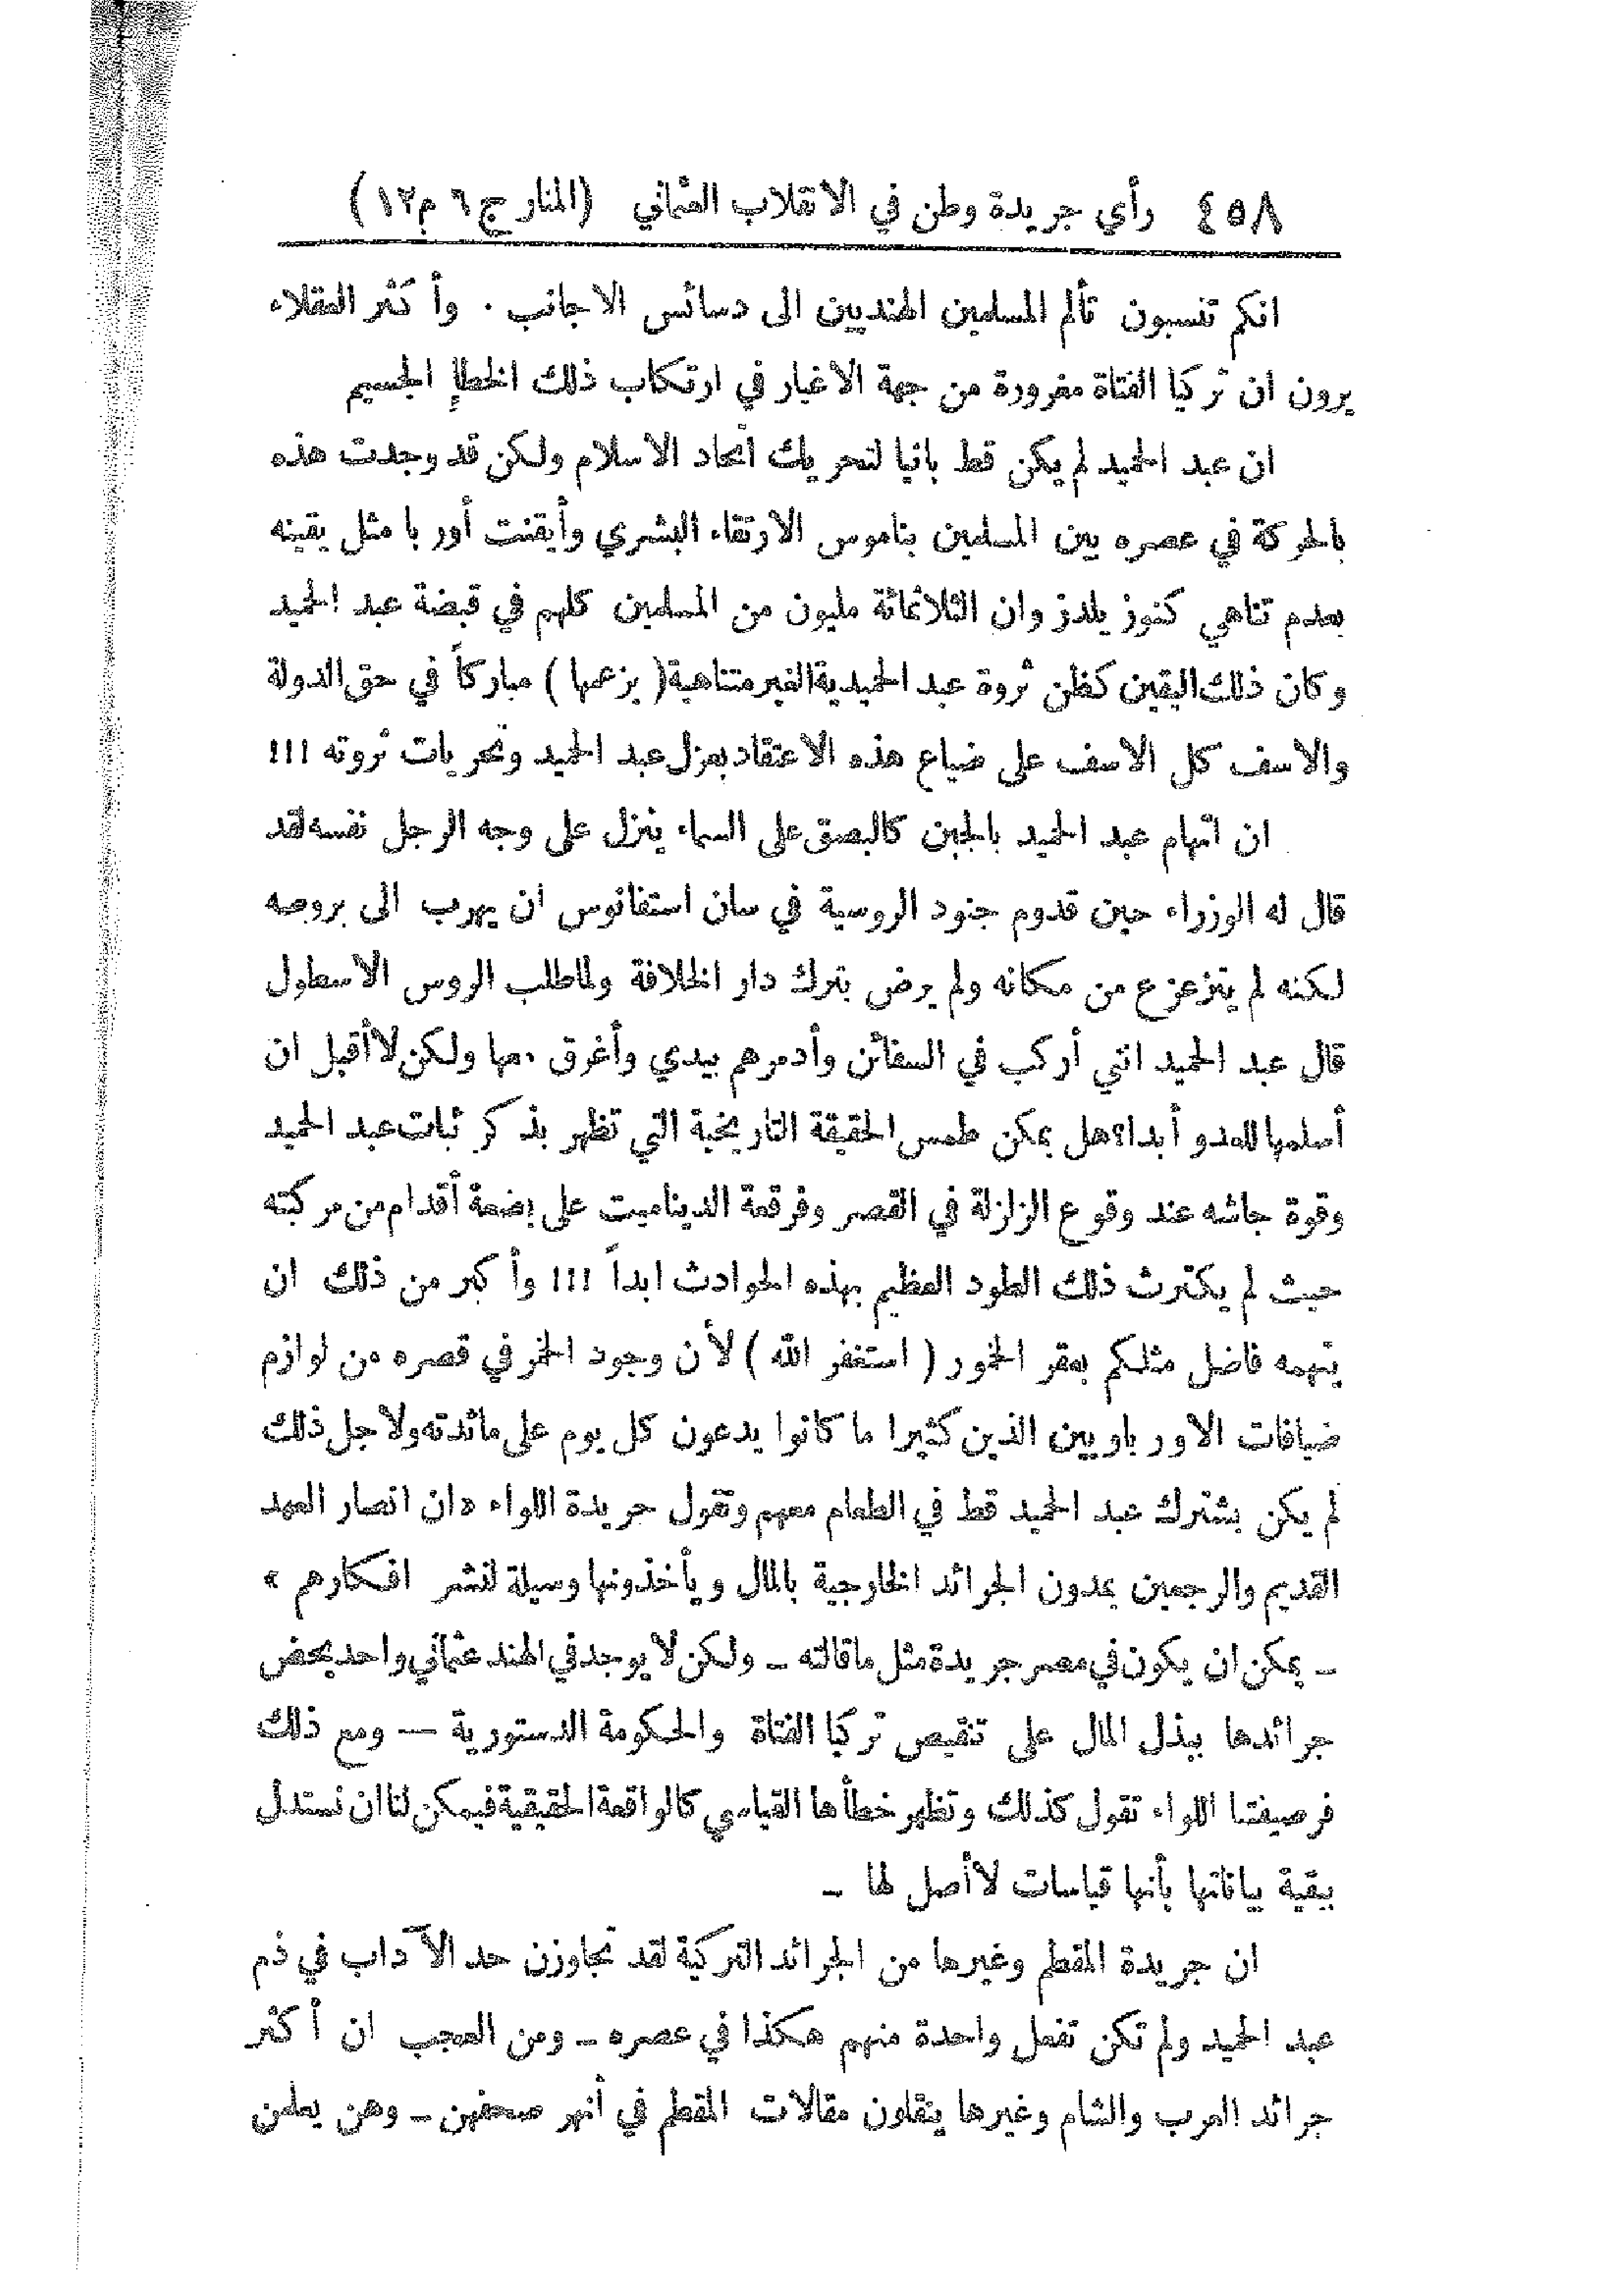 ٤٥٨ رأي جريدة وطن في الانقلاب العثماني (المنار ج ٦ م ١٢)
انكم تنسبون تألم المسلمين الهنديين الى دسائس الاجانب . وأكثر العقلاء
يرون ان تركيا الفتاة مغرورة من جهة الاغيار في ارتكاب ذلك الخطإ الجسيم
ان عبد الحميد لم يكن قط بانيا لتحريك اتحاد الاسلام ولكن قد وجدت هذه
بالحركة في عصره بين المسلمين بناموس الارتقاء البشري وأيقنت أوربا مثل يقينه
بعدم تناهي كنوز يلدز وان الثلاثمائة مليون من المسلمين كلهم في قبضة عبد الحميد
وكان ذلك اليقين كظن ثروة عبد الحميدية الغير متناهية (بزعمها) مباركاً في حق الدولة
والاسف كل الاسف على ضياع هذه الاعتقاد بعزل عبد الحميد وتحريات ثروته !!!
ان اتهام عبد الحميد بالجبن كالبصق على السماء ينزل على وجه الرجل نفسه لقد
قال له الوزراء حين قدوم جنود الروسية في سان استفانوس ان يهرب الى بروصه
لكنه لم يتزعزع من مكانه ولم يرض بترك دار الخلافة ولما طلب الروس الاسطول
قال عبد الحميد انني أركب في السفائن وأدمرهم بيدي وأغرق معها ولكن لا أقبل ان
أسلمها للعدو أبدا؟ هل يمكن طمس الحقيقة التاريخية التي تظهر بذكر ثبات عبد الحميد
وقوة جاشه عند وقوع الزلزلة في القصر وفرقعة الديناميت على بضعة أقدام من مركبته
حيث لم يكترث ذلك الطود العظيم بهذه الحوادث ابداً !!! وأكبر من ذلك ان
يتهمه فاضل مثلكم بعقر الخور ( استغفر الله ) لأن وجود الخمر في قصره من لوازم
ضيافات الاورباويين الذين كثيرا ما كانوا يدعون كل يوم على مائدته ولاجل ذلك
لم يكن يشترك عبد الحميد قط في الطعام معهم وتقول جريدة اللواء «ان انصار العهد
القديم والرجعيين يمدون الجرائد الخارجية بالمال ويأخذونها وسيلة لنشر افكارهم »
ـ يمكن ان يكون في مصر جريدة مثل ما قالته ـ ولكن لا يوجد في الهند عثماني واحد يحض
جرائدها ببذل المال على تنقيص تركيا الفتاة والحكومة الدستورية — ومع ذلك
فرصيفتنا اللواء تقول كذلك وتظهر خطأها القياسي كالواقعة الحقيقية فيمكن لنا ان نستدل
ببقية بياناتها بأنها قياسات لا أصل لها ـ
ان جريدة المقطم وغيرها من الجرائد التركية لقد تجاوزن حد الآداب في ذم
عبد الحميد ولم تكن تفعل واحدة منهم هكذا في عصره ـ ومن العجب ان أكثر
جرائد العرب والشام وغيرها ينقلون مقالات المقطم في أنهر صحفهن ـ وهن يعلمن